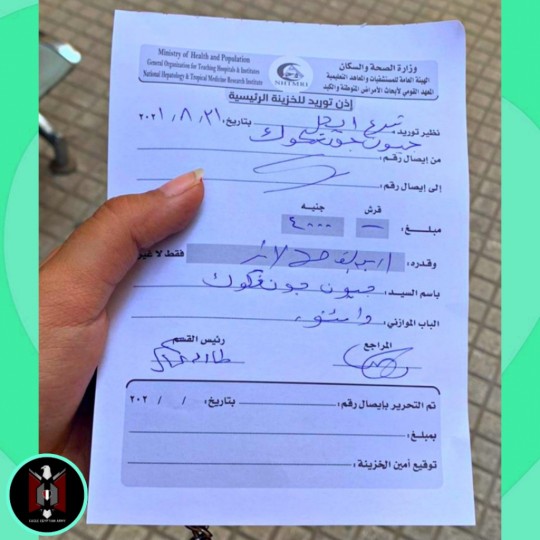 Ministry of Health and Population
General Organization for Teaching Hospitals & Institutes
National Hepatology & Tropical Medicine Research Institute
NHTMRI
وزارة الصحة والسكان
الهيئة العامة للمستشفيات والمعاهد التعليمية
المعهد القومى لأبحاث الأمراض المتوطنة والكبد
إذن توريد للخزينة الرئيسية
نظير توريد تبرع لأجل بتاريخ: ٣١ / ٨ / ٢٠٢١
جيون جونغكوك
من إيصال رقم:
إلى إيصال رقم:
قرش جنيه
مبلغ: — ٤٠٠٠
وقدره: أربعة آلاف جنيه لا غير فقط لا غير
باسم السيد: جيون جونغكوك
الباب الموازني:
المراجع رئيس القسم
تم التحرير بإيصال رقم: بتاريخ: / / ٢٠٢
بمبلغ:
توقيع أمين الخزينة: